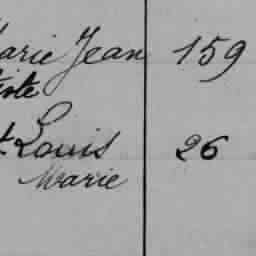 arie Jean 159
iste
t Louis 26
Marie